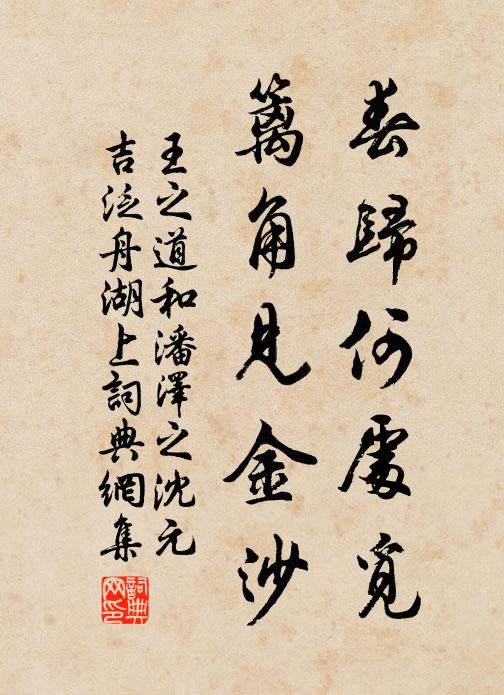 春歸何處覓
籬角見金沙
王之道和潘澤之沈元
吉泛舟湖上詞典網集
詞典網印